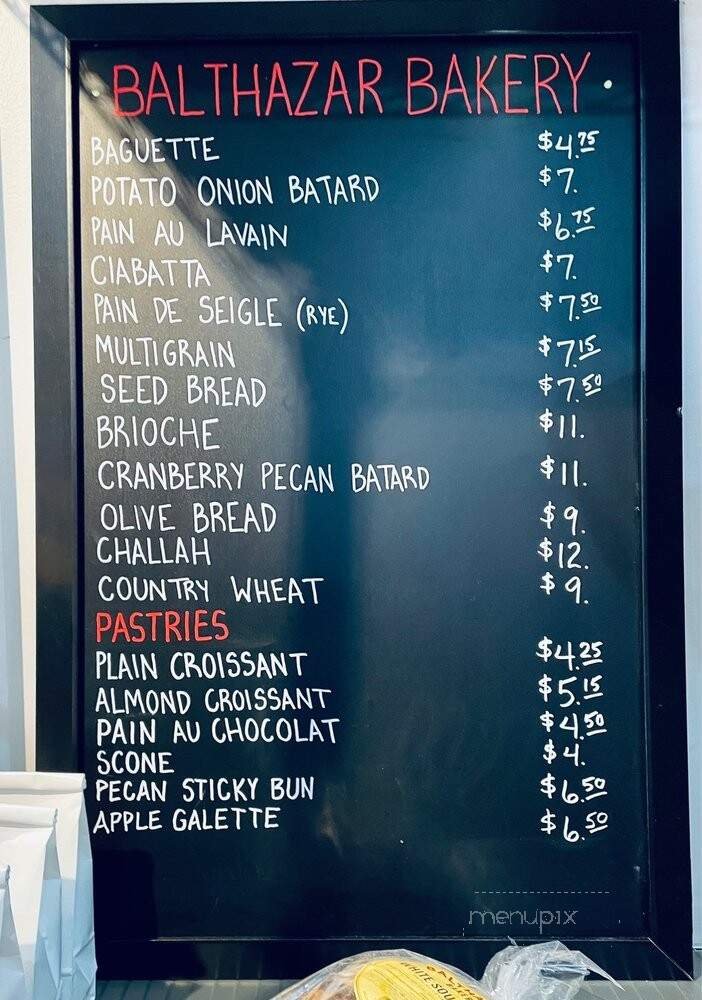 BALTHAZAR BAKERY
BAGUETTE $4.75
POTATO ONION BATARD $7.
PAIN AU LAVAIN $6.75
CIABATTA $7.
PAIN DE SEIGLE (RYE) $7.50
MULTIGRAIN $7.15
SEED BREAD $7.50
BRIOCHE $11.
CRANBERRY PECAN BATARD $11.
OLIVE BREAD $9.
CHALLAH $12.
COUNTRY WHEAT $9.
PASTRIES
PLAIN CROISSANT $4.25
ALMOND CROISSANT $5.15
PAIN AU CHOCOLAT $4.50
SCONE $4.
PECAN STICKY BUN $6.50
APPLE GALETTE $6.50
menupix